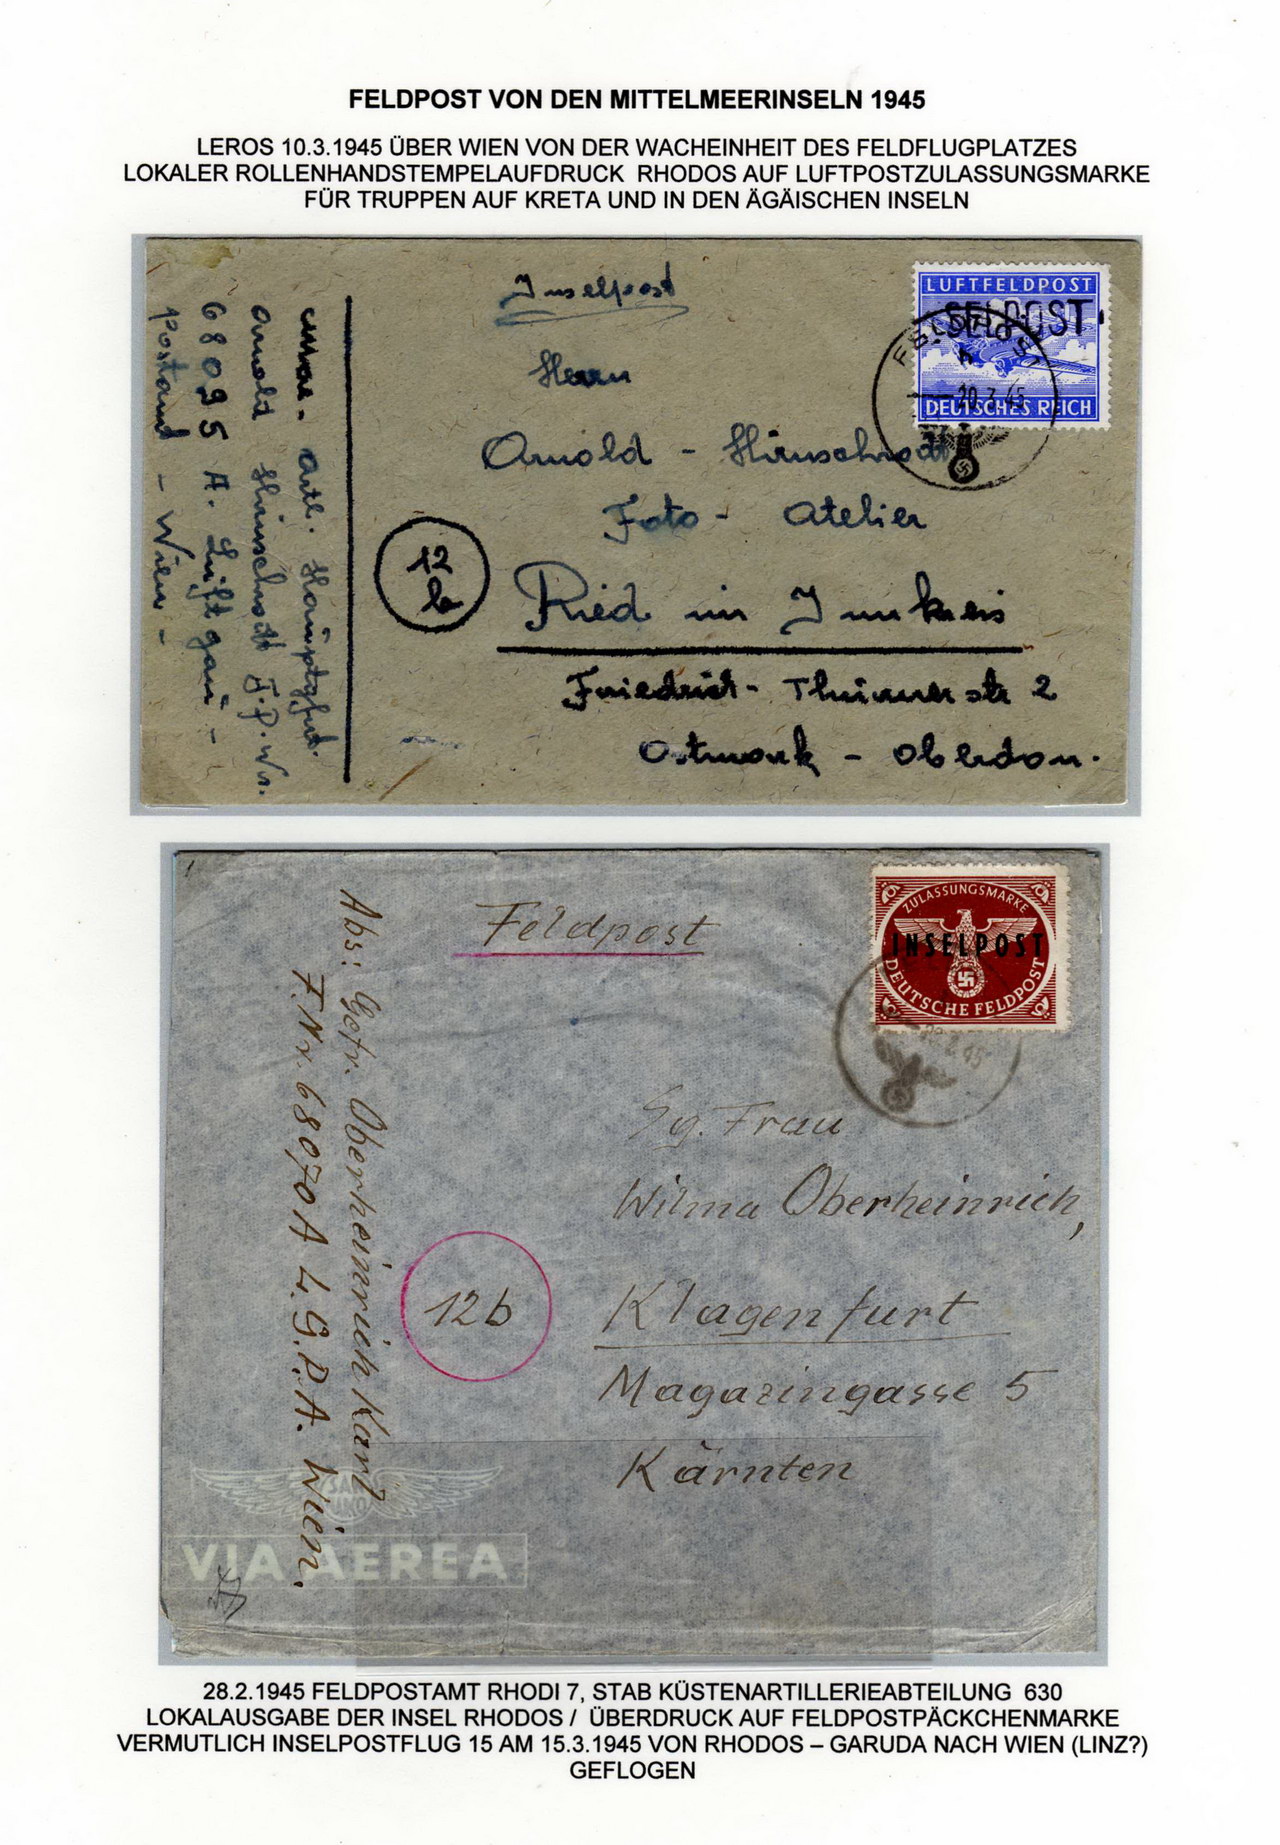 FELDPOST VON DEN MITTELMEERINSELN 1945
LEROS 10.3.1945 ÜBER WIEN VON DER WACHEINHEIT DES FELDFLUGPLATZES
LOKALER ROLLENHANDSTEMPELAUFDRUCK RHODOS AUF LUFTPOSTZULASSUNGSMARKE
FÜR TRUPPEN AUF KRETA UND IN DEN ÄGÄISCHEN INSELN
Inselpost
LUFTFELDPOST
SELPOST
FELDPOST
20.3.45
DEUTSCHES REICH
Herrn
Arnold - Hirnschrodt
Foto - Atelier
12
b
Ried im Innkreis
Friedrich - Thurnerstr 2
Ostmark - Oberdon.
Artl.
Arnold Hirnschrodt F.P.Nr.
68095 A. Luftgau -
Postamt - Wien -
Feldpost
ZULASSUNGSMARKE
INSELPOST
DEUTSCHE FELDPOST
Abs: Gefr. Oberheinrich Karl
F.Nr. 68070A L.G.P.A. Wien.
Sg. Frau
Wilma Oberheinrich,
12b
Klagenfurt
Magazingasse 5
Kärnten
VIA AEREA
28.2.1945 FELDPOSTAMT RHODI 7, STAB KÜSTENARTILLERIEABTEILUNG 630
LOKALAUSGABE DER INSEL RHODOS / ÜBERDRUCK AUF FELDPOSTPÄCKCHENMARKE
VERMUTLICH INSELPOSTFLUG 15 AM 15.3.1945 VON RHODOS – GARUDA NACH WIEN (LINZ?)
GEFLOGEN